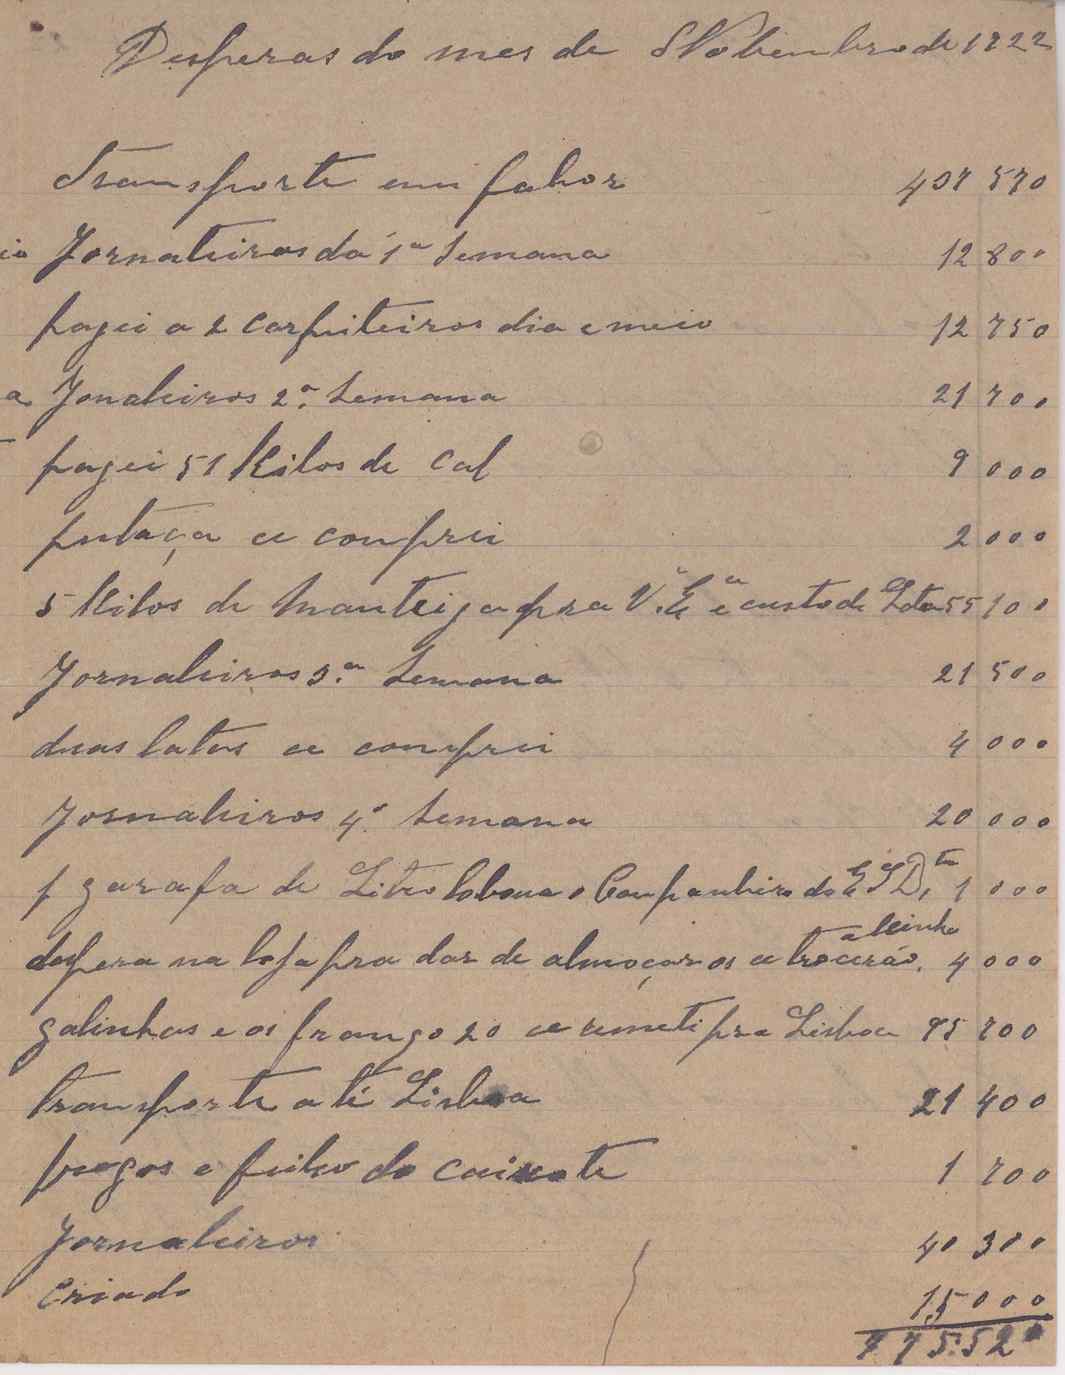 Despesas do mes de Nobembro de 1922
Transporte em fabor 407 570
Jornaleiros da 1ª Semana 12 800
paguei a 2 carpiteiros dia e meio 12 750
a Jonaleiros 2ª. Semana 21 700
paguei 51 Kilos de Cal 9 000
putaça ce comprei 2 000
5 Kilos de Manteiga pra V. Eª e custo de Lata 55 100
Jornaleiros 3.ª Semana 21 500
duas latas ce comprei 4 000
Jornaleiros 4ª. Semana 20 000
1 garafa de Litro labou o Companheiro do 1 000
despesa na loja pra dar de almoçar os ce trocerão a linha 4 000
galinhas e os frango 20 ce remeti pra Lisboa 85 700
transporte até Lisboa 21 400
pregos e feitio do caixote 1 700
Jornaleiros 40 300
Criado 15 000
735:520